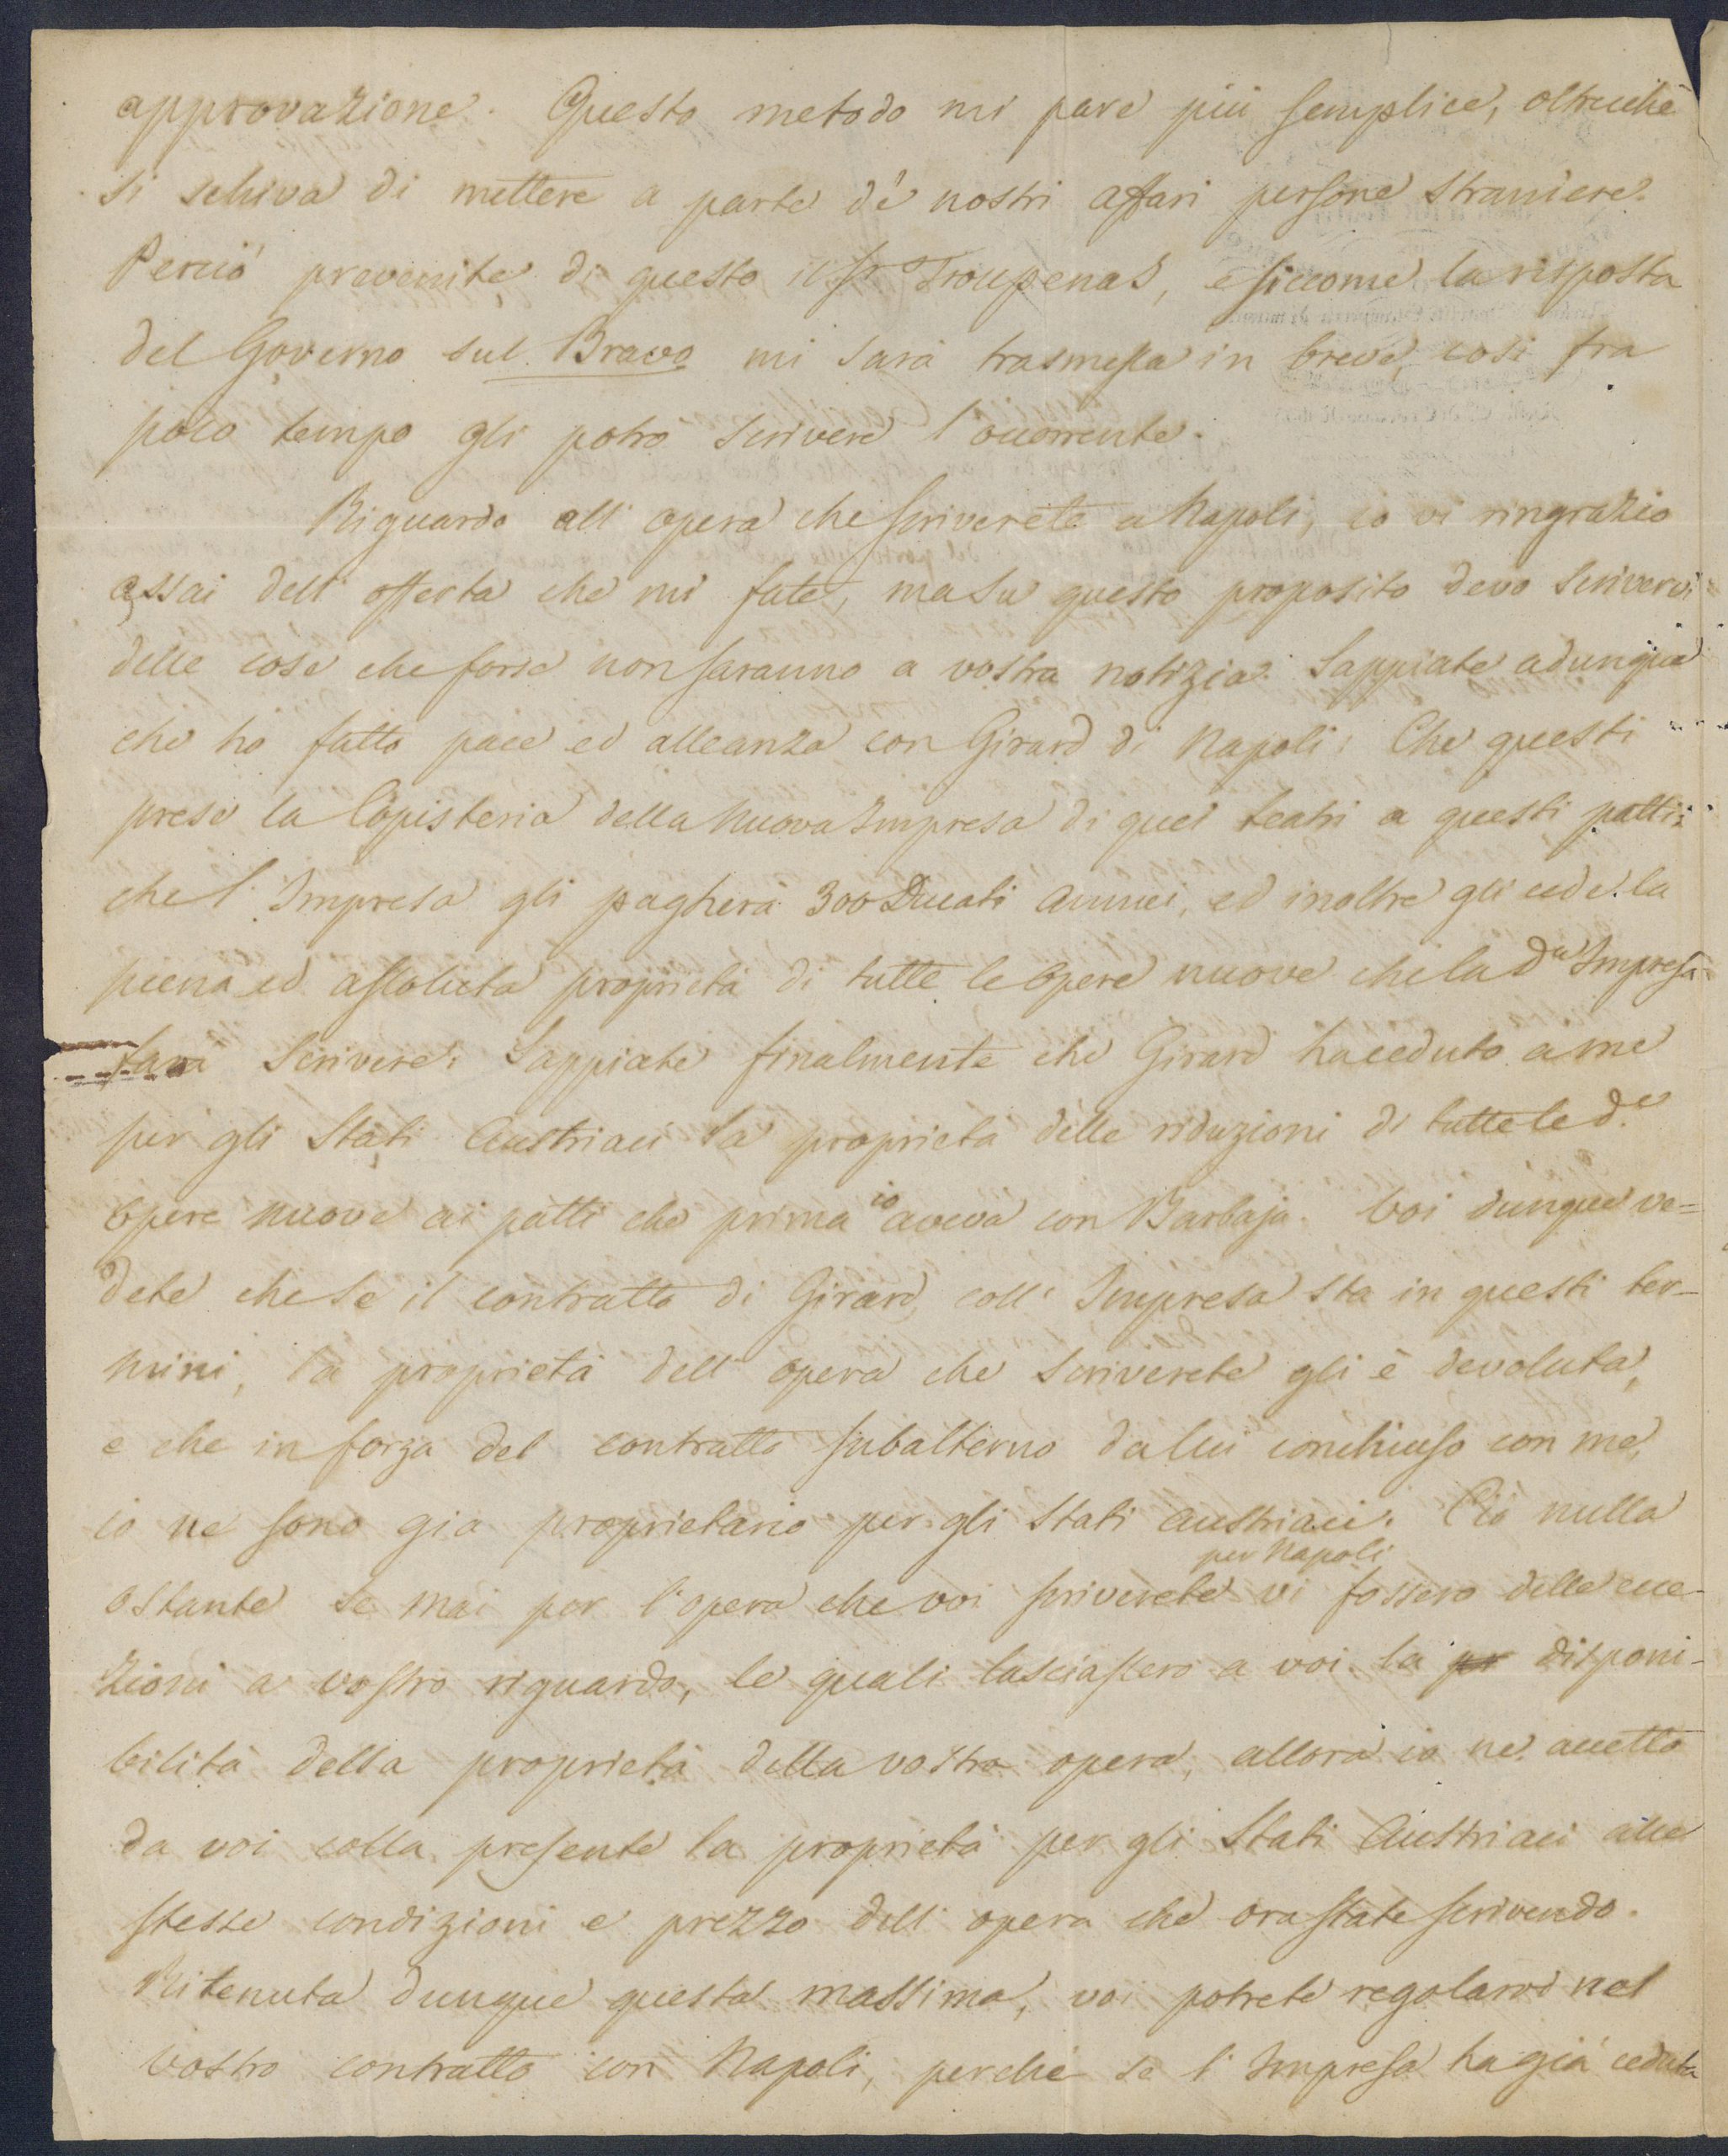 approvazione. Questo metodo mi pare più semplice, oltrecchè
si schiva di mettere a parte de' nostri affari persone straniere.
Perciò prevenite di questo il Sr Troupenas, e siccome la risposta
del Governo sul Bravo mi sarà trasmessa in breve, così fra
poco tempo gli potrò scrivere l'occorrente.
Riguardo all' opera che scriverete a Napoli, io vi ringrazio
assai dell' offerta che mi fate, ma su questo proposito devo scrivervi
delle cose che forse non saranno a vostra notizia. Sappiate adunque
che ho fatto pace ed alleanza con Girard di Napoli: Che questi
prese la Copisteria della nuova Impresa di quei teatri a questi patti:
che l' Impresa gli pagherà 300 Ducati annui, ed inoltre gli cede la
piena ed assoluta proprietà di tutte le opere nuove che la da Impresa
farà scrivere: Sappiate finalmente che Girard ha ceduto a me
per gli Stati Austriaci la proprietà delle riduzioni di tutte le de
opere nuove ai patti che prima io aveva con Barbaja. Voi dunque ve=
dete che se il contratto di Girard coll' Impresa sta in questi ter-
mini, la proprietà dell' opera che scriverete gli è devoluta,
e che in forza del contratto subalterno da lui conchiuso con me,
io ne sono già proprietario per gli Stati Austriaci. Ciò nulla
ostante se mai per l'opera che voi scriverete per Napoli vi fossero delle ecce-
zioni a vostro riguardo, le quali lasciassero a voi la pr disponi-
bilità della proprietà della vostra opera, allora io ne accetto
da voi colla presente la proprietà per gli Stati Austriaci alle
stesse condizioni e prezzo dell' opera che ora state scrivendo.
Ritenuta dunque questa massima, voi potrete regolarvi nel
vostro contratto con Napoli, perchè se l' Impresa ha già ceduta